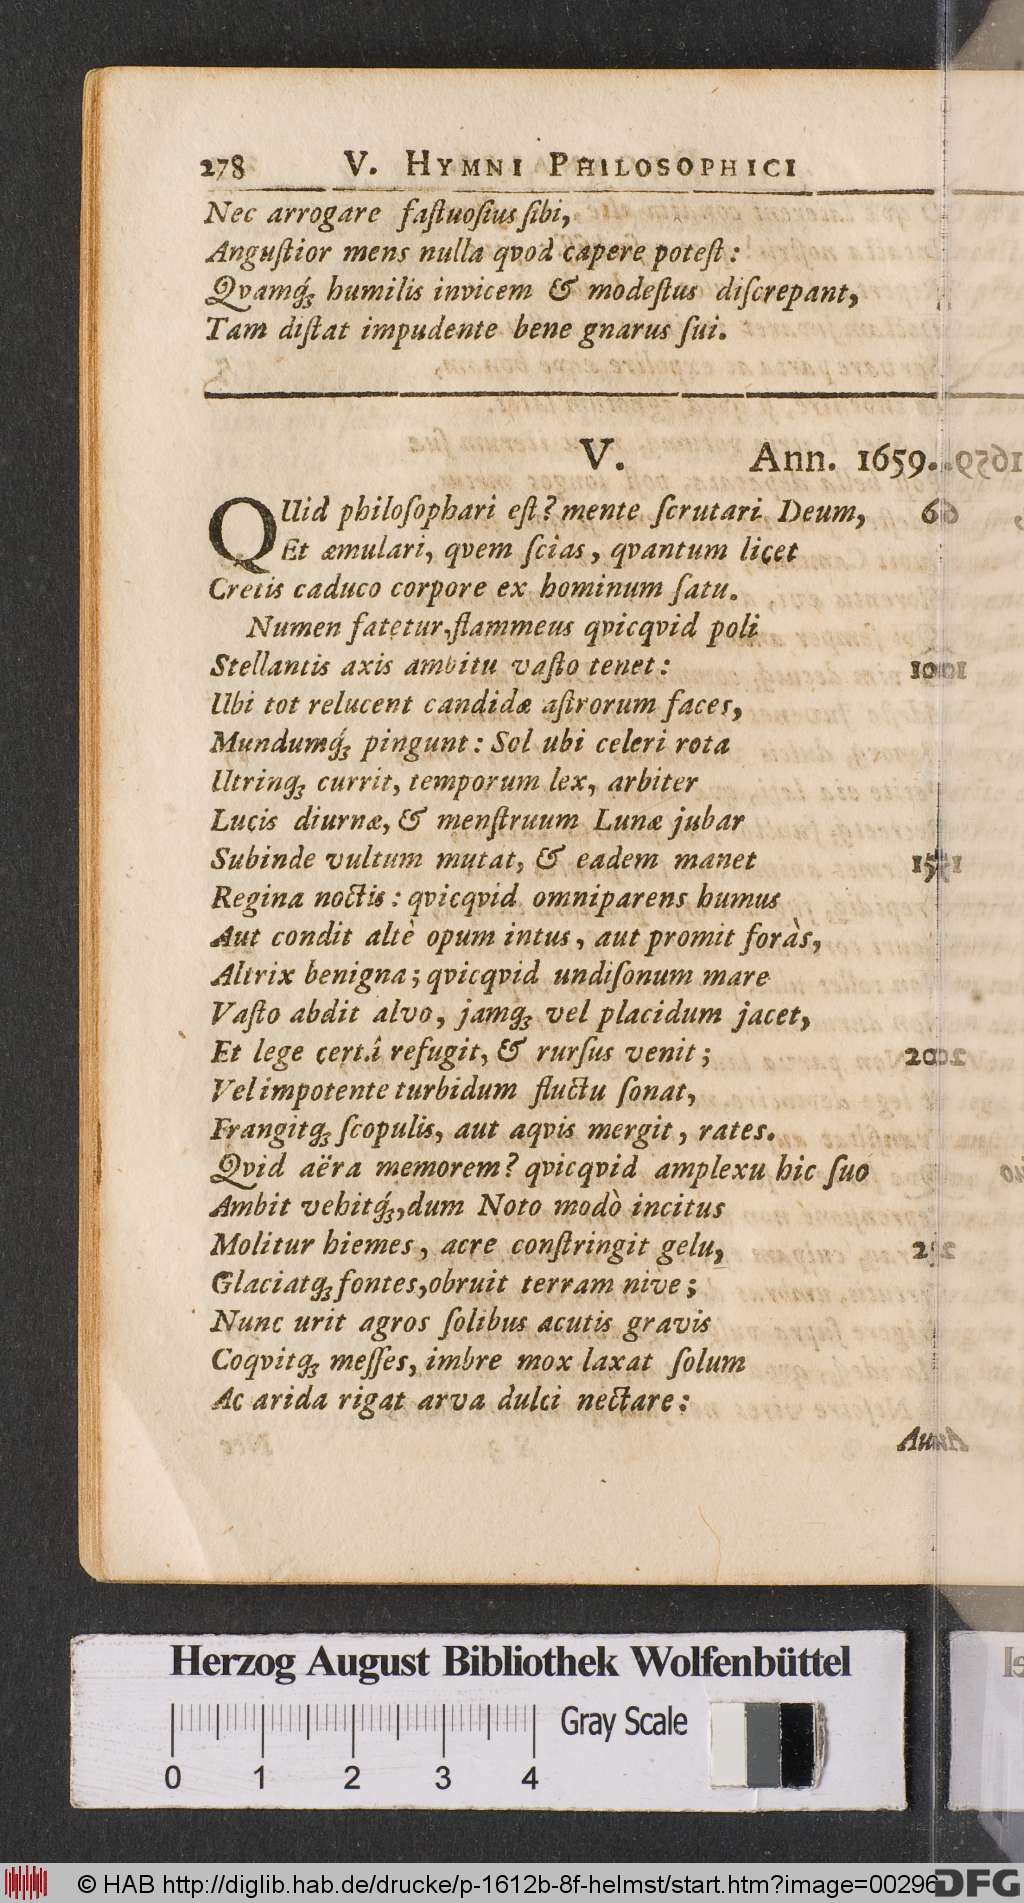 278 V. HYMNI PHILOSOPHICI
Nec arrogare faſtuoſius ſibi,
Anguſtior mens nulla qvod capere poteſt:
Qvamq́ꝫ humilis invicem & modeſtus diſcrepant,
Tam diſtat impudente bene gnarus ſui.
V. Ann. 1659.
QUid philoſophari eſt? mente ſcrutari Deum,
Et æmulari, qvem ſcias, qvantum licet
Cretis caduco corpore ex hominum ſatu.
Numen fatetur, flammeus qvicqvid poli
Stellantis axis ambitu vaſto tenet:
Ubi tot relucent candidæ aſtrorum faces,
Mundumq́ꝫ pingunt: Sol ubi celeri rota
Utrinqꝫ currit, temporum lex, arbiter
Lucis diurnæ, & menſtruum Lunæ jubar
Subinde vultum mutat, & eadem manet
Regina noctis: qvicqvid omniparens humus
Aut condit altè opum intus, aut promit foràs,
Altrix benigna; qvicqvid undiſonum mare
Vaſto abdit alvo, jamqꝫ vel placidum jacet,
Et lege certâ refugit, & rurſus venit;
Vel impotente turbidum fluctu ſonat,
Frangitqꝫ ſcopulis, aut aqvis mergit, rates.
Qvid aëra memorem? qvicqvid amplexu hic ſuo
Ambit vehitq́ꝫ, dum Noto modò incitus
Molitur hiemes, acre conſtringit gelu,
Glaciatqꝫ fontes, obruit terram nive;
Nunc urit agros ſolibus acutis gravis
Coqvitqꝫ meſſes, imbre mox laxat ſolum
Ac arida rigat arva dulci nectare:
Herzog August Bibliothek Wolfenbüttel
Gray Scale
0 1 2 3 4
© HAB http://diglib.hab.de/drucke/p-1612b-8f-helmst/start.htm?image=00296
DFG